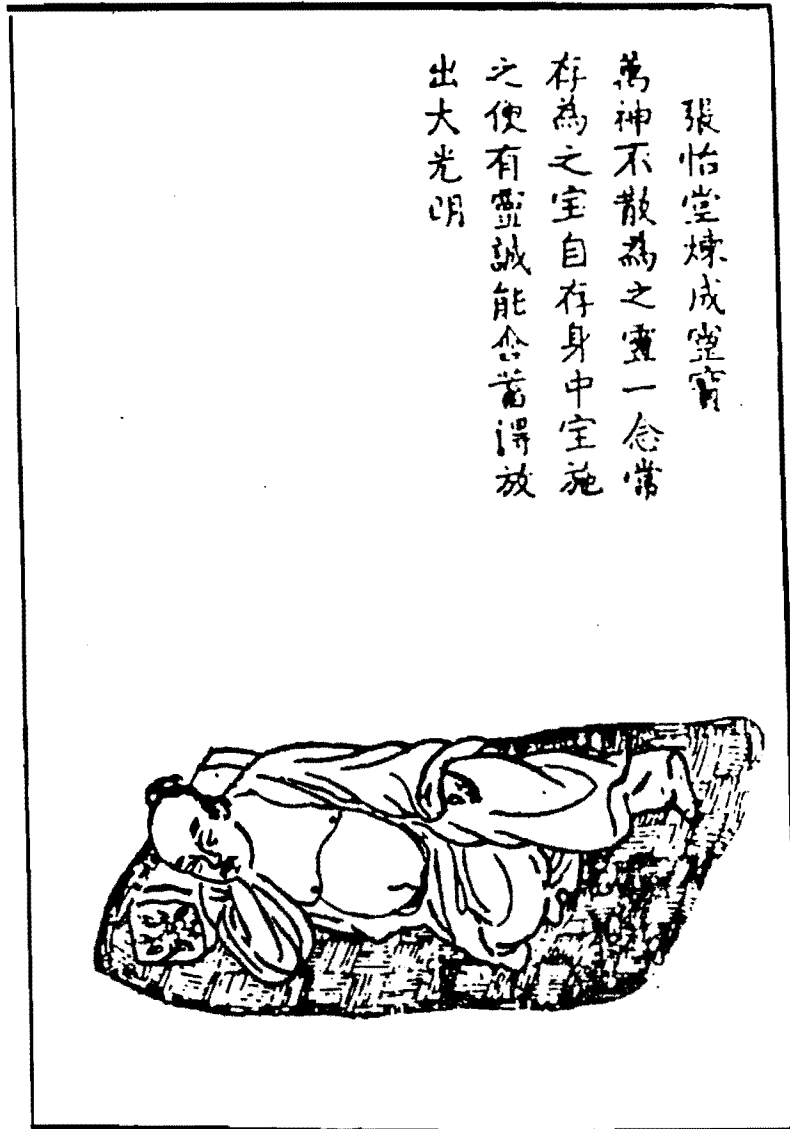 張怡堂煉成靈寶
萬神不散為之靈一念常
存為之宝自存身中宝施
之便有靈誠能含蓄得放
出大光明